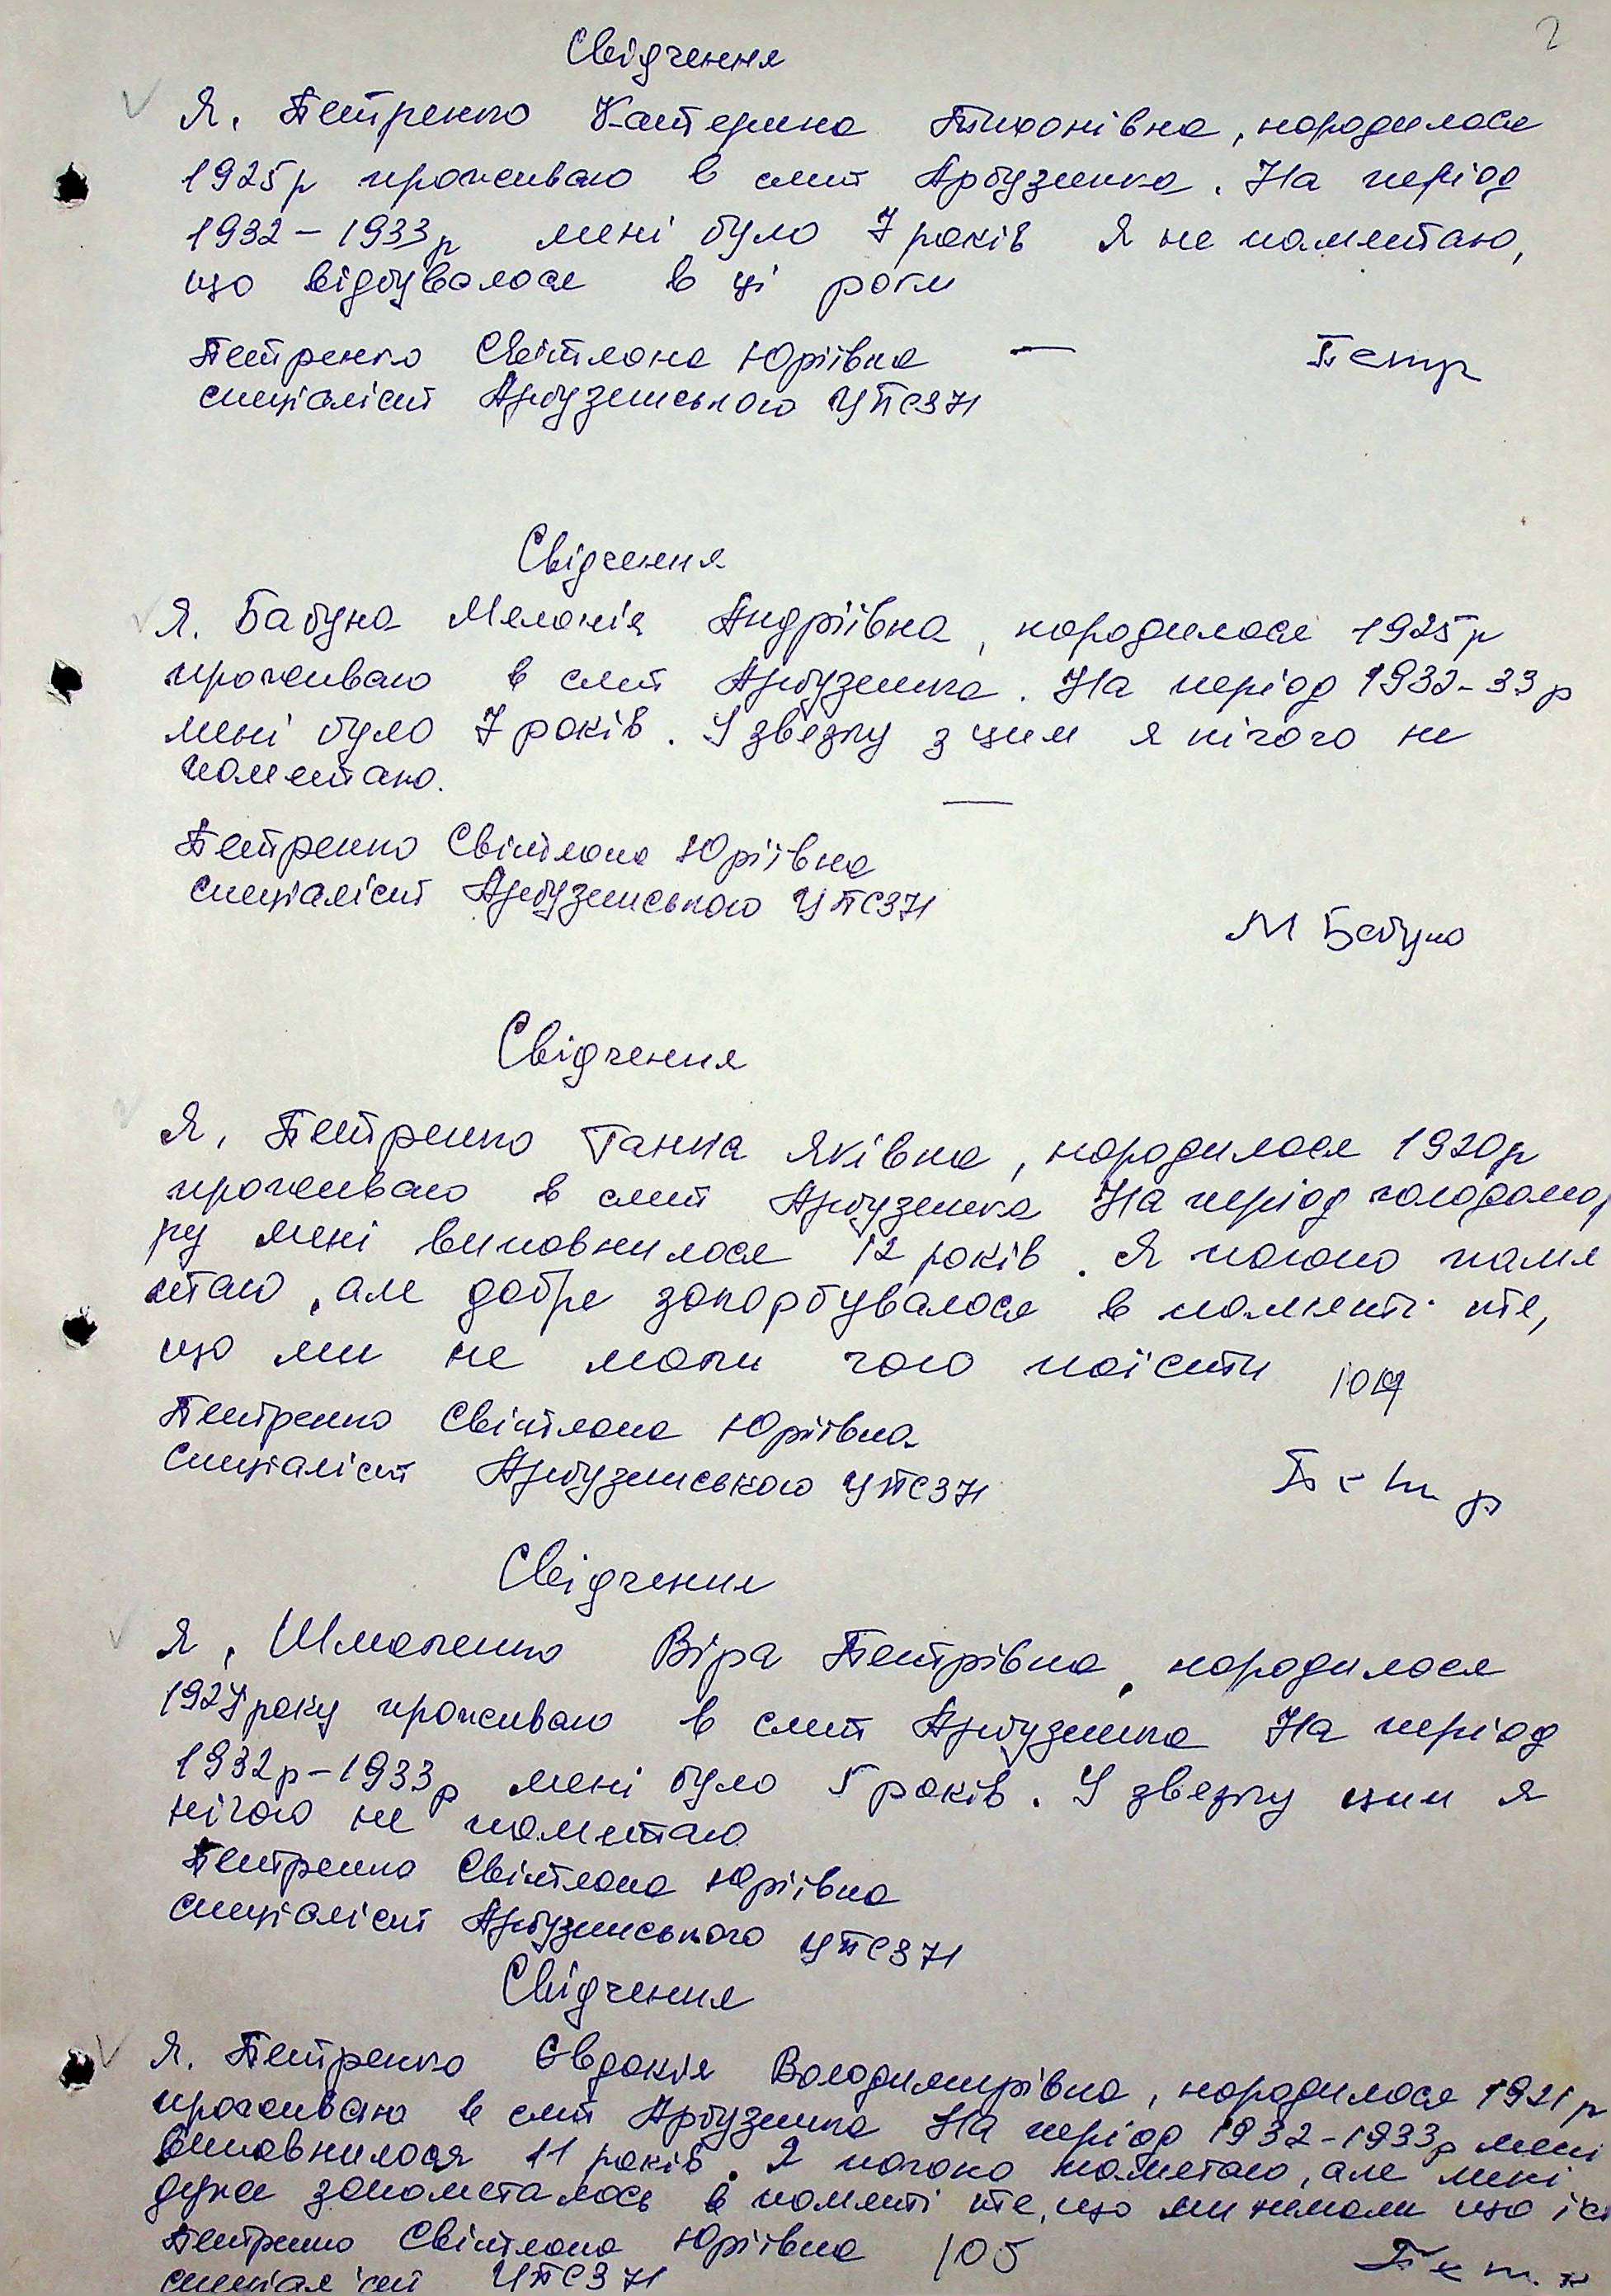 2
Свідчення
Я, Петренко Катерина Тихонівна, народилася
1925р проживаю в смт Арбузинка. На період
1932 – 1933р мені було 7 років Я не памятаю,
що відбувалося в ці роки
Петренко Світлана Юріївна — Петр
спеціаліст Арбузинського УПСЗН
Свідчення
Я. Бабуна Меланія Андріївна, народилася 1925р
проживаю в смт Арбузинка. На період 1932-33р
мені було 7 років. У звязку з цим я нічого не
памятаю.
Петренко Світлана Юріївна
спеціаліст Арбузинського УПСЗН
М Бабуна
Свідчення
Я, Петренко Ганна Яківна, народилася 1920р
проживаю в смт Арбузинка На період голодомо
ру мені виповнилося 12 років. Я погано памя
таю, але добре закарбувалося в памяті те,
що ми не мали чого поїсти
Петренко Світлана Юріївна
Спеціаліст Арбузинського УПСЗН
Петр
Свідчення
Я, Шмаленко Віра Петрівна, народилася
1927року проживаю в смт Арбузинка На період
1932р – 1933р мені було 5 років. У звязку цим я
нічого не памятаю
Петренко Світлана Юріївна
спеціаліст Арбузинського УПСЗН
Свідчення
Я. Петренко Євдокія Володимирівна, народилася 1921р
проживаю в смт Арбузинка На період 1932-1933р мені
виповнилося 11 років. Я погано памятаю, але мені
дуже запамяталось в памяті те, що ми немали що їс
Петренко Світлана Юріївна 105
спеціаліст УПСЗН